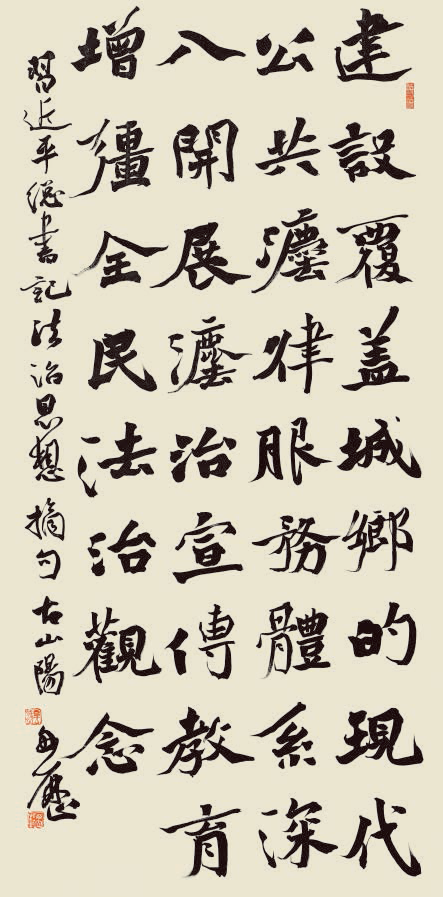 建設覆盖城鄉的現代
公共灋律服務體系深
入開展灋治宣傳教育
增彊全民法治觀念
習近平總書記法治思想摘句 古山陽